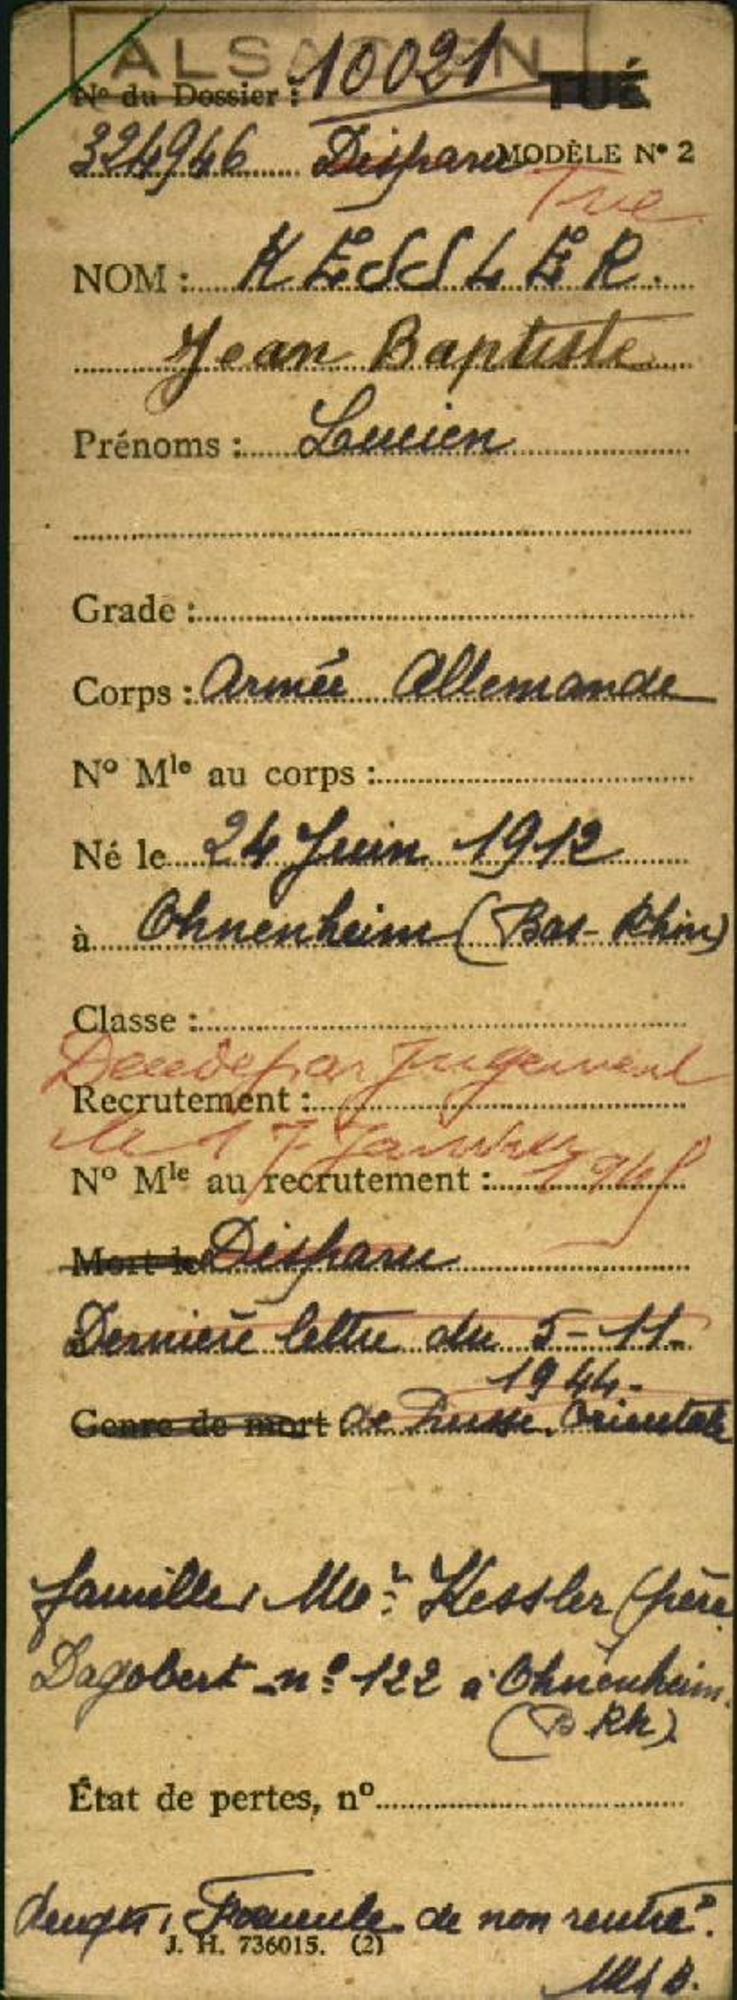 ALSACIEN
N° du Dossier : 10021 TUÉ
324946 Disparu MODÈLE N° 2
Tué
NOM : KESSLER.
Jean Baptiste
Prénoms : Lucien
Grade :
Corps : Armée Allemande
N° Mle au corps :
Né le 24 Juin 1912
à Ohnenheim (Bas-Rhin)
Classe :
Décédé par Jugement
Recrutement :
le 17 Janvier
N° Mle au recrutement : 1945
Mort le Disparu
Dernière lettre du 5-11-
1944.
Genre de mort de Prusse. Orientale
famille, Mr Kessler (père
Dagobert - n° 122 à Ohnenheim.
(B Rh)
État de pertes, n°
Formule de non rentré".
J. H. 736015. (2)